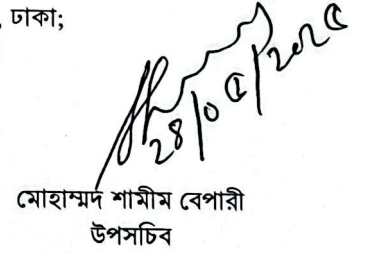 , ঢাকা;
২৪/০৫/২০২৫
মোহাম্মদ শামীম বেপারী
উপসচিব